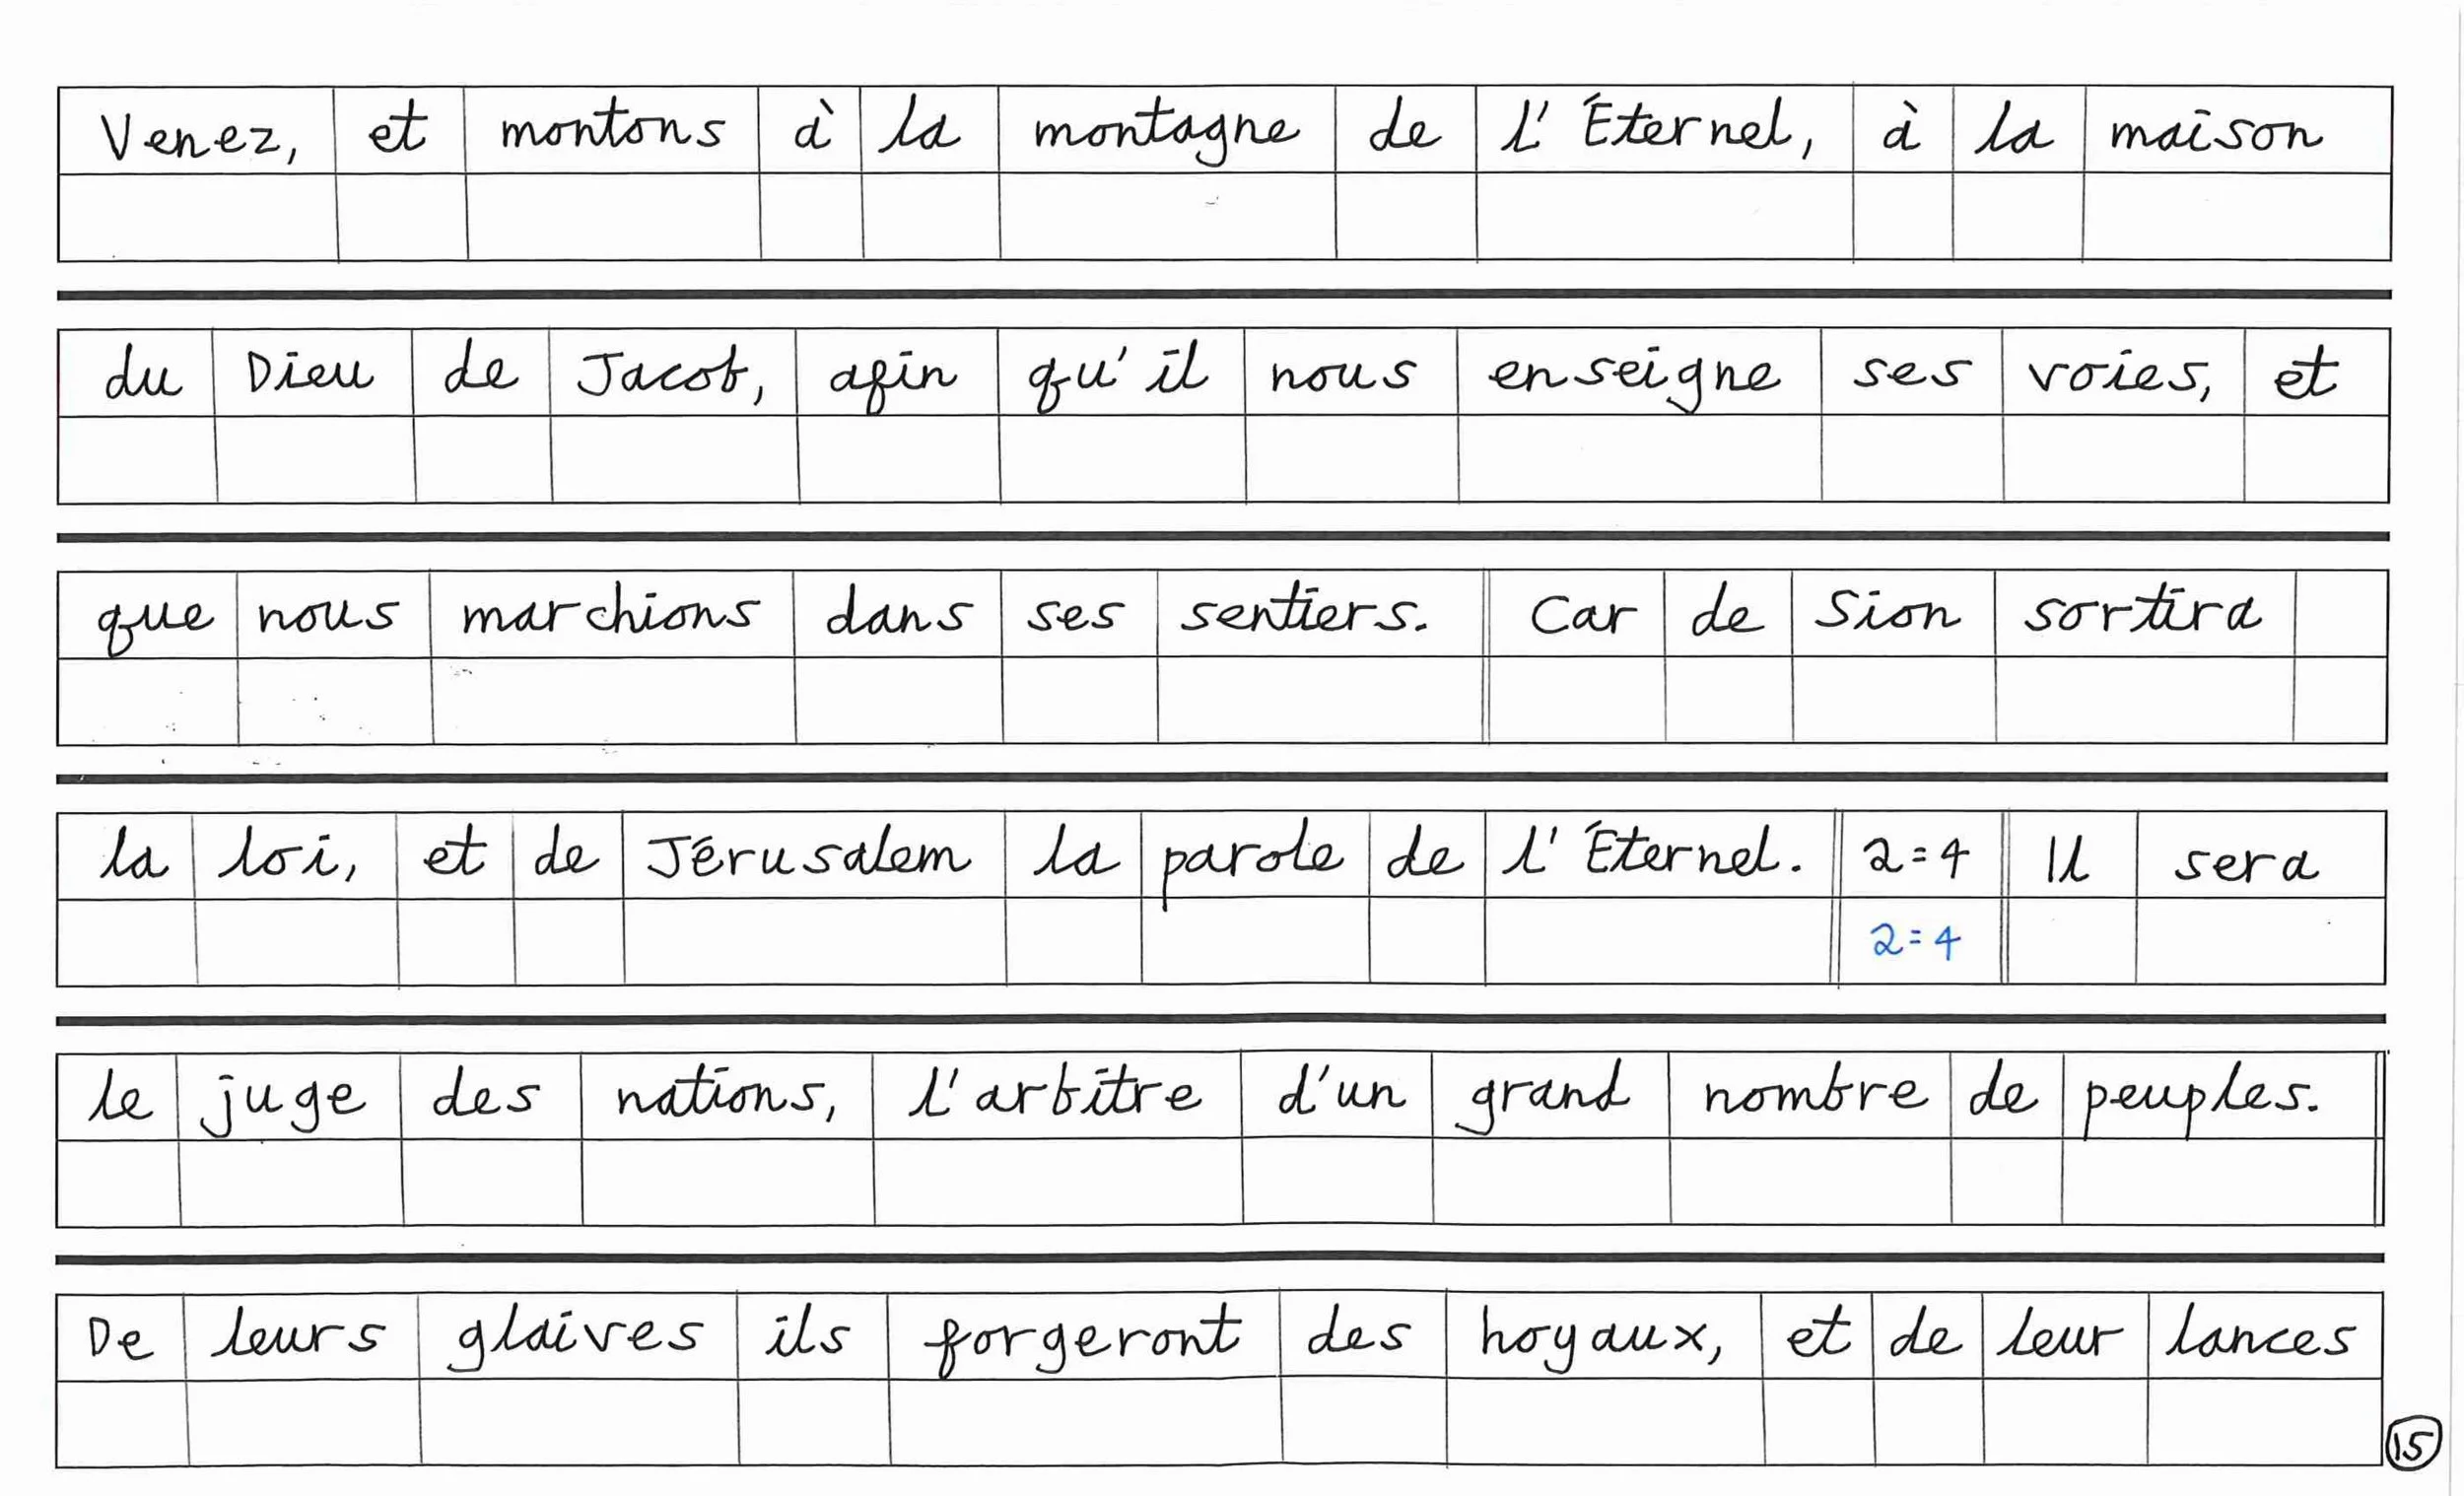 Venez, et montons à la montagne de l'Éternel, à la maison
du Dieu de Jacob, afin qu'il nous enseigne ses voies, et
que nous marchions dans ses sentiers. Car de Sion sortira
la loi, et de Jérusalem la parole de l'Éternel. 2=4 Il sera
2=4
le juge des nations, l'arbitre d'un grand nombre de peuples.
De leurs glaives ils forgeront des hoyaux, et de leur lances
15